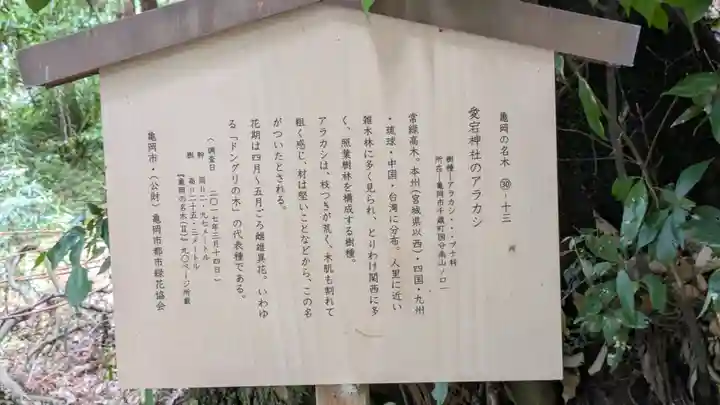 亀岡の名木 ㉚-十三
愛宕神社のアラカシ
樹種ーアラカシ・・・ブナ科
所在ー亀岡市千歳町国分南山ノ口一
常緑高木。本州(宮城県以西)・四国・九州
・琉球・中国・台湾に分布。人里に近い
雑木林に多く見られ、とりわけ関西に多
く、照葉樹林を構成する樹種。
アラカシは、枝つきが荒く、木肌も割れて
粗く感じ、材は堅いことなどから、この名
がついたとされる。
花期は四月〜五月ごろ雌雄異花。いわゆ
る「ドングリの木」の代表種である。
(調査日 二〇一七年三月十四日)
幹 周=二・九七メートル
樹 高=二十五・三メートル
【亀岡の名木(Ⅱ)】九〇ページ所載
亀岡市・(公財)亀岡市都市緑花協会